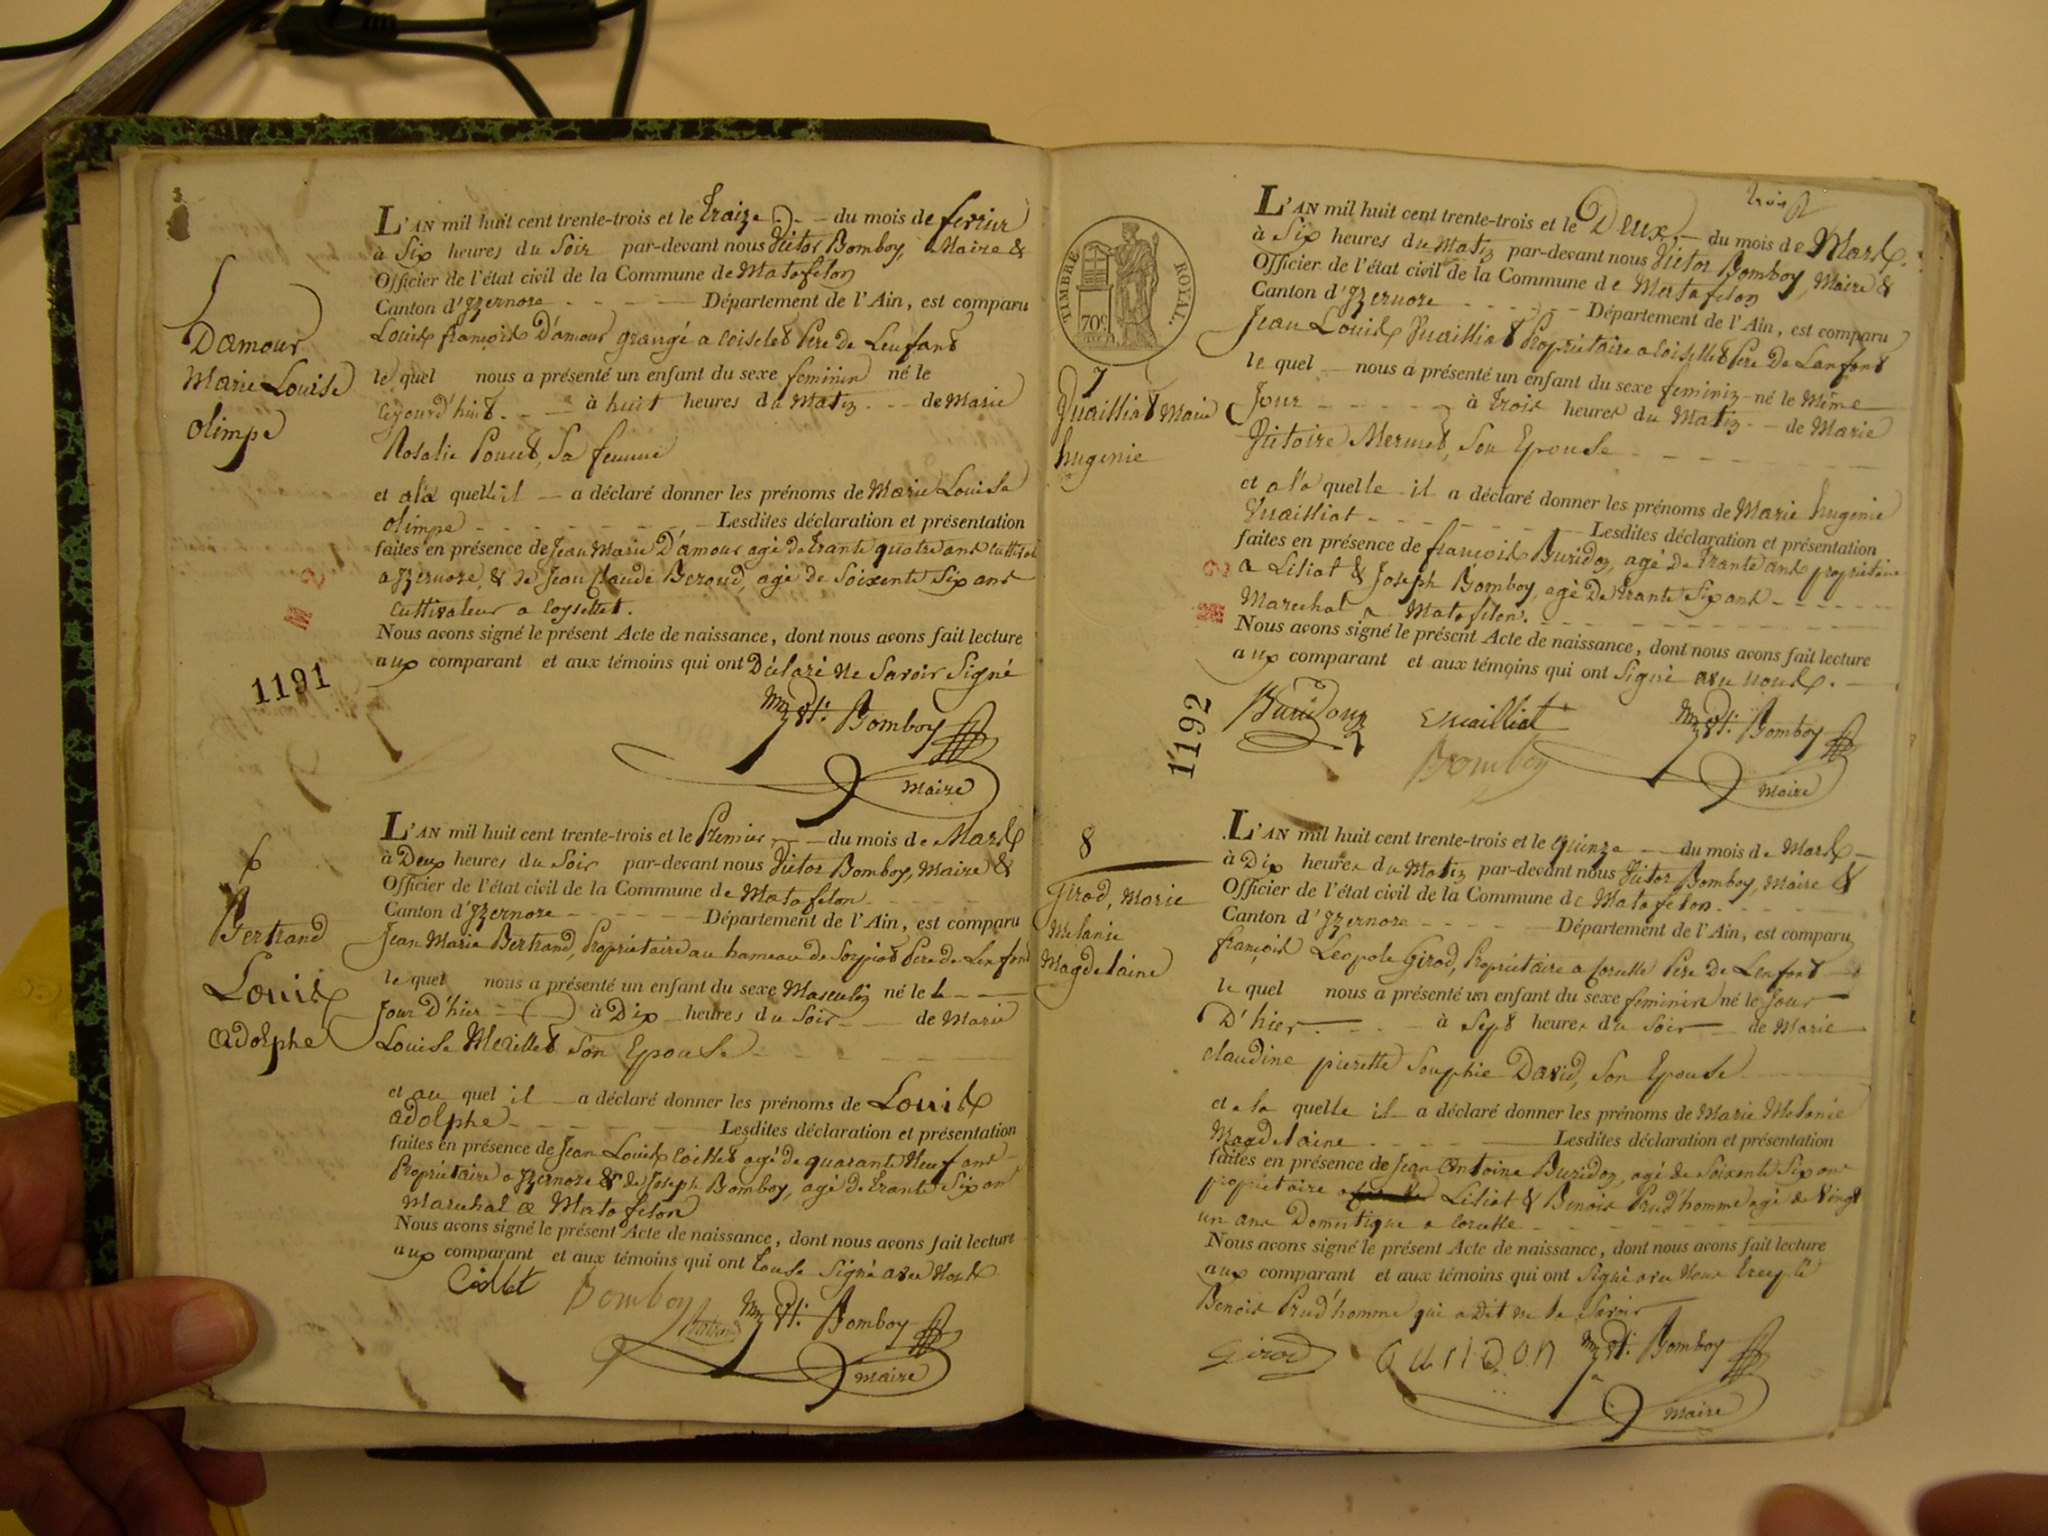 L'AN mil huit cent trente-trois et le traize du mois de fevrier
à Six heures du Soir par-devant nous Victor Bomboy, Maire &
Officier de l'état civil de la Commune de Matafelon
Canton d'Izernore Département de l'Ain, est comparu
Louis françois D'amour grangé a Coiselet Pere de Lenfant
le quel nous a présenté un enfant du sexe feminin né le
cejourd'huit à huit heures du Matin de Marie
Rosalie Poncet, Sa femme
et a la quelle il a déclaré donner les prénoms de Marie Louise
olimpe Lesdites déclaration et présentation
faites en présence de Jean Marie D'amour agé de trante quatre ans cultivat
a Izernore, & de Jean Claude Beroud, agé de Soixente Six ans
Cultivateur a Coyselet.
Nous avons signé le présent Acte de naissance, dont nous avons fait lecture
aux comparant et aux témoins qui ont Déclaré ne Savoir Signé
Bomboy
Maire
Damour
Marie Louise
olimpe
1191
6
Bertrand
Louis
adolphe
L'AN mil huit cent trente-trois et le Premier du mois de Mars
à Deux heures du Soir par-devant nous Victor Bomboy, Maire &
Officier de l'état civil de la Commune de Matafelon
Canton d'Izernore Département de l'Ain, est comparu
Jean Marie Bertrand, Propriétaire au hameau de Sorpiat Pere de Lenfant
le quel nous a présenté un enfant du sexe Masculin né le
Jour D'hier à Dix heures du Soir de Marie
Louise Meillet Son Epouse
et au quel il a déclaré donner les prénoms de Louis
adolphe Lesdites déclaration et présentation
faites en présence de Jean Louis Coillet agé de quarante Neuf ans
Propriétaire a Izernore & de Joseph Bomboy, agé de trante Six ans
Marechal a Matafelon
Nous avons signé le présent Acte de naissance, dont nous avons fait lecture
aux comparant et aux témoins qui ont touse Signé avec Nous
Bomboy Bertrand Bomboy
Maire
trois
TIMBRE ROYAL.
70c
L'AN mil huit cent trente-trois et le Deux du mois de Mars
à Six heures du Matin par-devant nous Victor Bomboy, Maire &
Officier de l'état civil de la Commune de Matafelon
Canton d'Izernore Département de l'Ain, est comparu
Jean Louis Vuailliat Propriétaire a Coisellet Pere De Lanfant
le quel nous a présenté un enfant du sexe feminin né le Même
Jour à trois heures du Matin de Marie
Victoire Mermet, Son Epouse
et a la quelle il a déclaré donner les prénoms de Marie hugenie
Vuailliat Lesdites déclaration et présentation
faites en présence de françois Buridon, agé De trante ans propriétaire
a Lisiat & Joseph Bomboy, agé De trante Six ans
Marechal a Matafelon.
Nous avons signé le présent Acte de naissance, dont nous avons fait lecture
aux comparant et aux témoins qui ont Signé avec nous.
Buridon Vuailliat Bomboy
Bomboy Maire
7
Vuailliat Marie
hugenie
1192
8
Girod, Marie
Melanie
Magdelaine
L'AN mil huit cent trente-trois et le quinze du mois de Mars
à Dix heures du Matin par-devant nous Victor Bomboy, Maire &
Officier de l'état civil de la Commune de Matafelon
Canton d'Izernore Département de l'Ain, est comparu
françois Leopole Girod, Propriétaire a Corcelle Pere de Lenfant
le quel nous a présenté un enfant du sexe feminin né le Jour
D'hier à Sept heures du Soir de Marie
Claudine pierette Souphie David, Son Epouse
et a la quelle il a déclaré donner les prénoms de Marie Melanie
Magdelaine Lesdites déclaration et présentation
faites en présence de Jean Antoine Buridon, agé de Soixente Six ans
propriétaire a Lisiat & Benois Prud'homme agé de Vingt
un ans Domestique a Corcelle
Nous avons signé le présent Acte de naissance, dont nous avons fait lecture
aux comparant et aux témoins qui ont Signé avec Nous Excepté
Benois Prud'homme qui a Dit ne le Savoir
Girod Buridon Bomboy
Maire